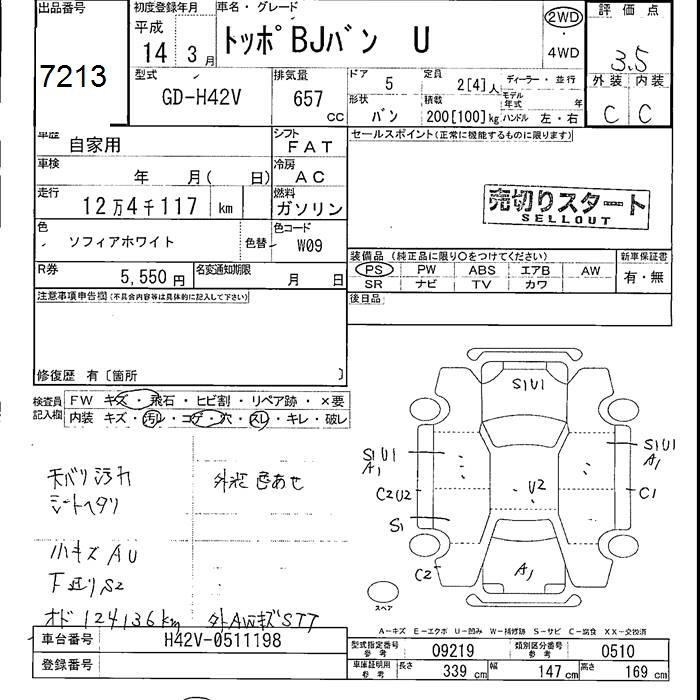 出品番号
7213
初度登録年月
平成
14 3月
車名・グレード
トッポBJバン U
2WD
4WD
評価点
3.5
外装 内装
C C
型式
GD-H42V
排気量
657
CC
ドア
5
定員
2[4]人
ディーラー・並行
形状
バン
積載
200[100]kg
モデル年式 年
ハンドル 左・右
車歴
自家用
シフト
FAT
車検
年 月( 日)
冷房
AC
走行
12万4千117 km
燃料
ガソリン
色
ソフィアホワイト
色替
色コード
W09
R券
5,550円
名変通知期限
月 日
セールスポイント(正常に機能するものに限ります)
売切りスタート
SELLOUT
装備品(純正品に限り○をつけてください)
PS PW ABS エアB AW
SR ナビ TV カワ
新車保証書
有・無
後日品
注意事項申告欄(不具合内容等は具体的に記入して下さい)
修復歴 有〔箇所 〕
検査員記入欄
FW キズ・飛石・ヒビ割・リペア跡・×要
内装 キズ・汚レ・コゲ・穴・スレ・キレ・破レ
天バリ汚れ
シートヘタリ
外装色あせ
小キズAU
下廻りS2
オド124136km
S1U1
S1U1
A1
C2U2
S1
C2
U2
A1
S1U1
A1
C1
スペア
A-キズ E-エクボ U-凹み W-補修跡 S-サビ C-腐食 XX-交換済
車台番号
H42V-0511198
登録番号
型式指定番号
参考
09219
類別区分番号
参考
0510
車庫証明用
参考
長さ 339 cm 幅 147 cm 高さ 169 cm